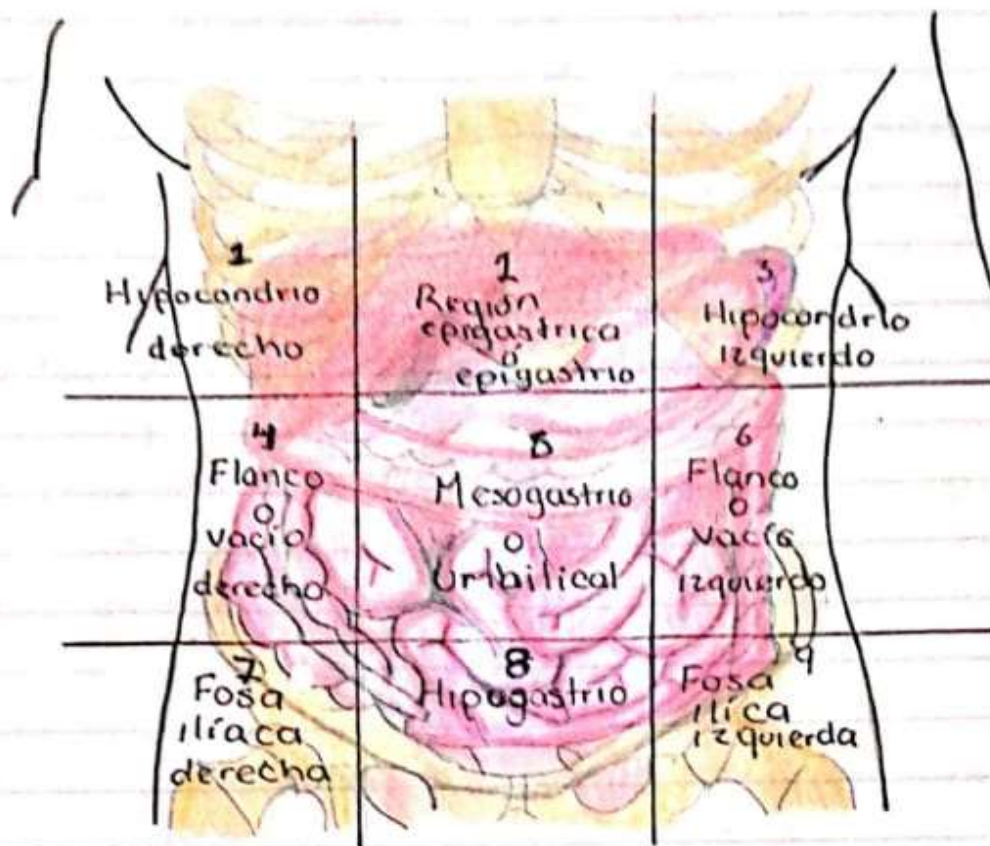 1
Hipocondrio
derecho
1
Región
epigastrica
ó
epigastrio
3
Hipocondrio
izquierdo
4
Flanco
o
vacío
derecho
5
Mesogastrio
o
Urbilical
6
Flanco
o
vacío
izquierdo
7
Fosa
ilíaca
derecha
8
Hipogastrio
9
Fosa
ilíca
izquierda